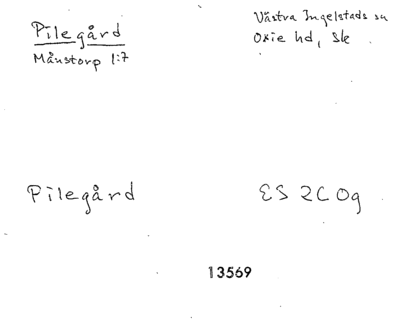 Pilegård
Månstorp 1:7
Västra Ingelstads sn
Oxie hd, Sk
Pilegård
ES 2C 0g
13569